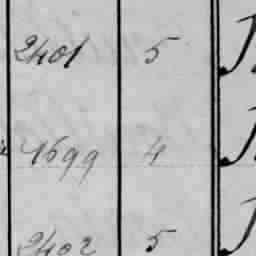 2401 5
1699 4
2402 5